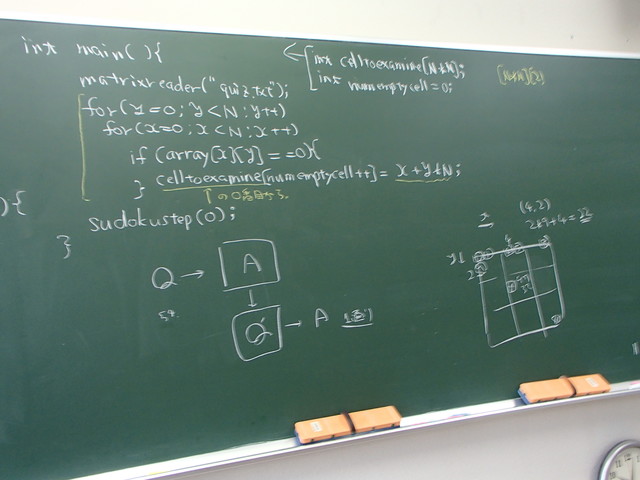 int main(){
matrixreader("quiz.txt");
for(y=0; y<N; y++)
for(x=0; x<N; x++)
if (array[x][y]==0){
celltoexamine[numemptycell++]= x+y*N;
}
↑の0番目から
sudokustep(0);
}
){
int celltoexamine[N*N];
int numemptycell=0;
[N*N][2]
Q → A
↓
Q' → A
x
(4,2)
2*9+4=22
y